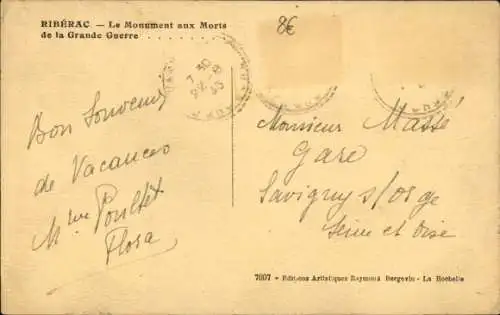 RIBÉRAC. — Le Monument aux Morts
de la Grande Guerre . . . . . . . . .
8€
7 30
Bon Souvenir
de Vacances
Mme
Flora
Monsieur Massé
Gare
Savigny s/Orge
Seine et Oise
7807 - Editions Artistiques Raymond Bergevin - La Rochelle